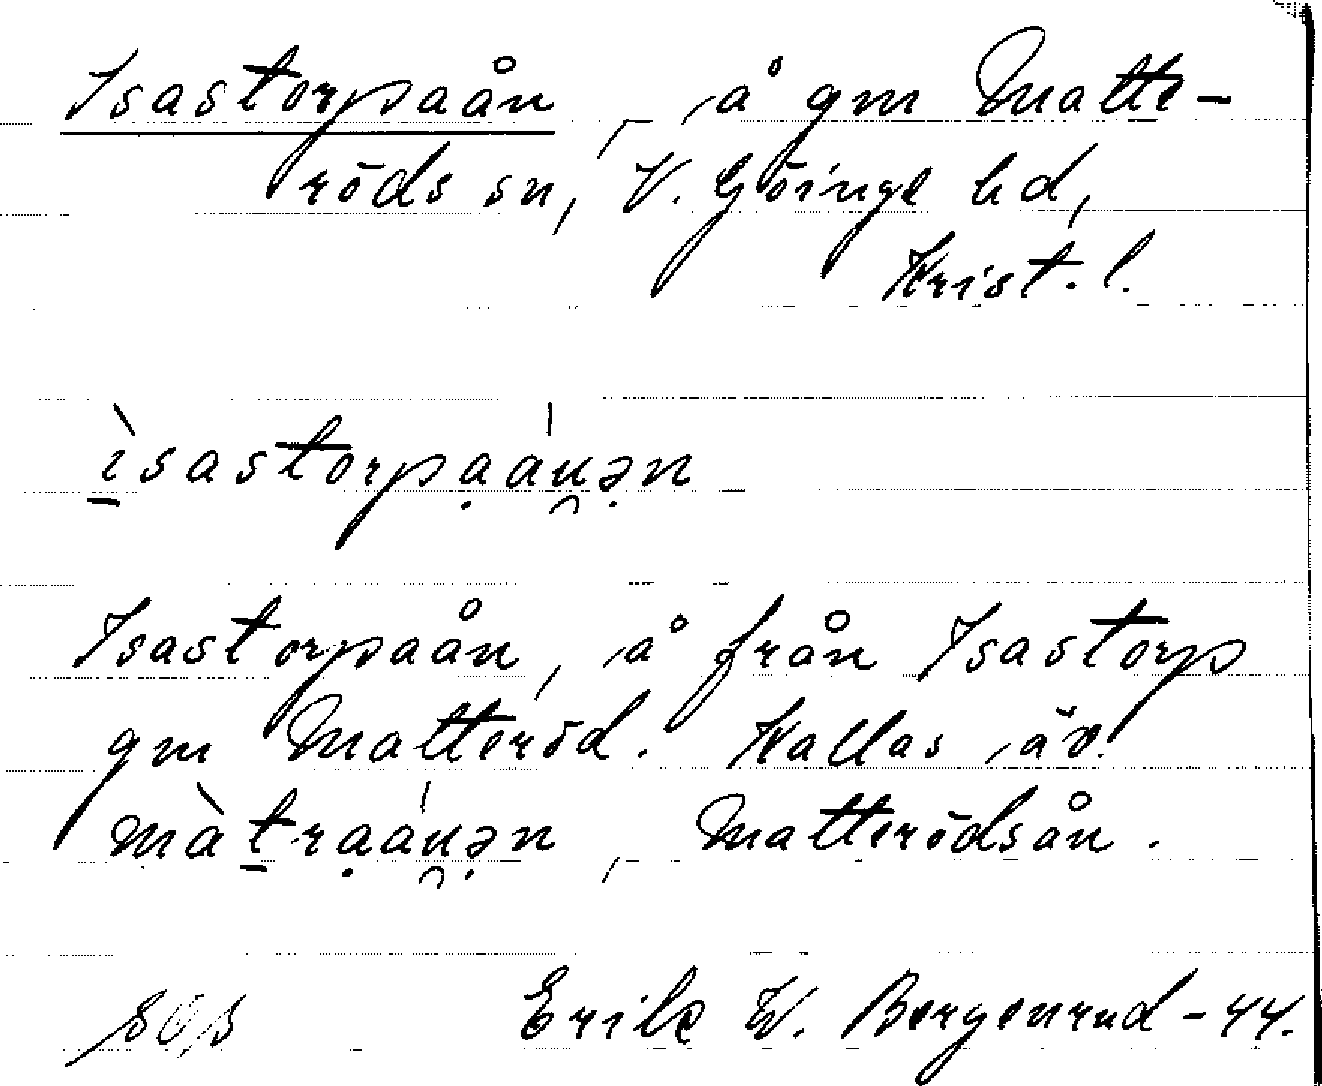 Isastorpaån, å gm Matte-
röds sn, V. Göinge hd,
Krist. l.
ìsastorpạáu̯ə̣n
Isastorpaån, å från Isastorp
gm Matteröd. Kallas äv.
màt̠rạáu̯ə̣n, Matterödsån.
Erik W. Bergenrud -44.